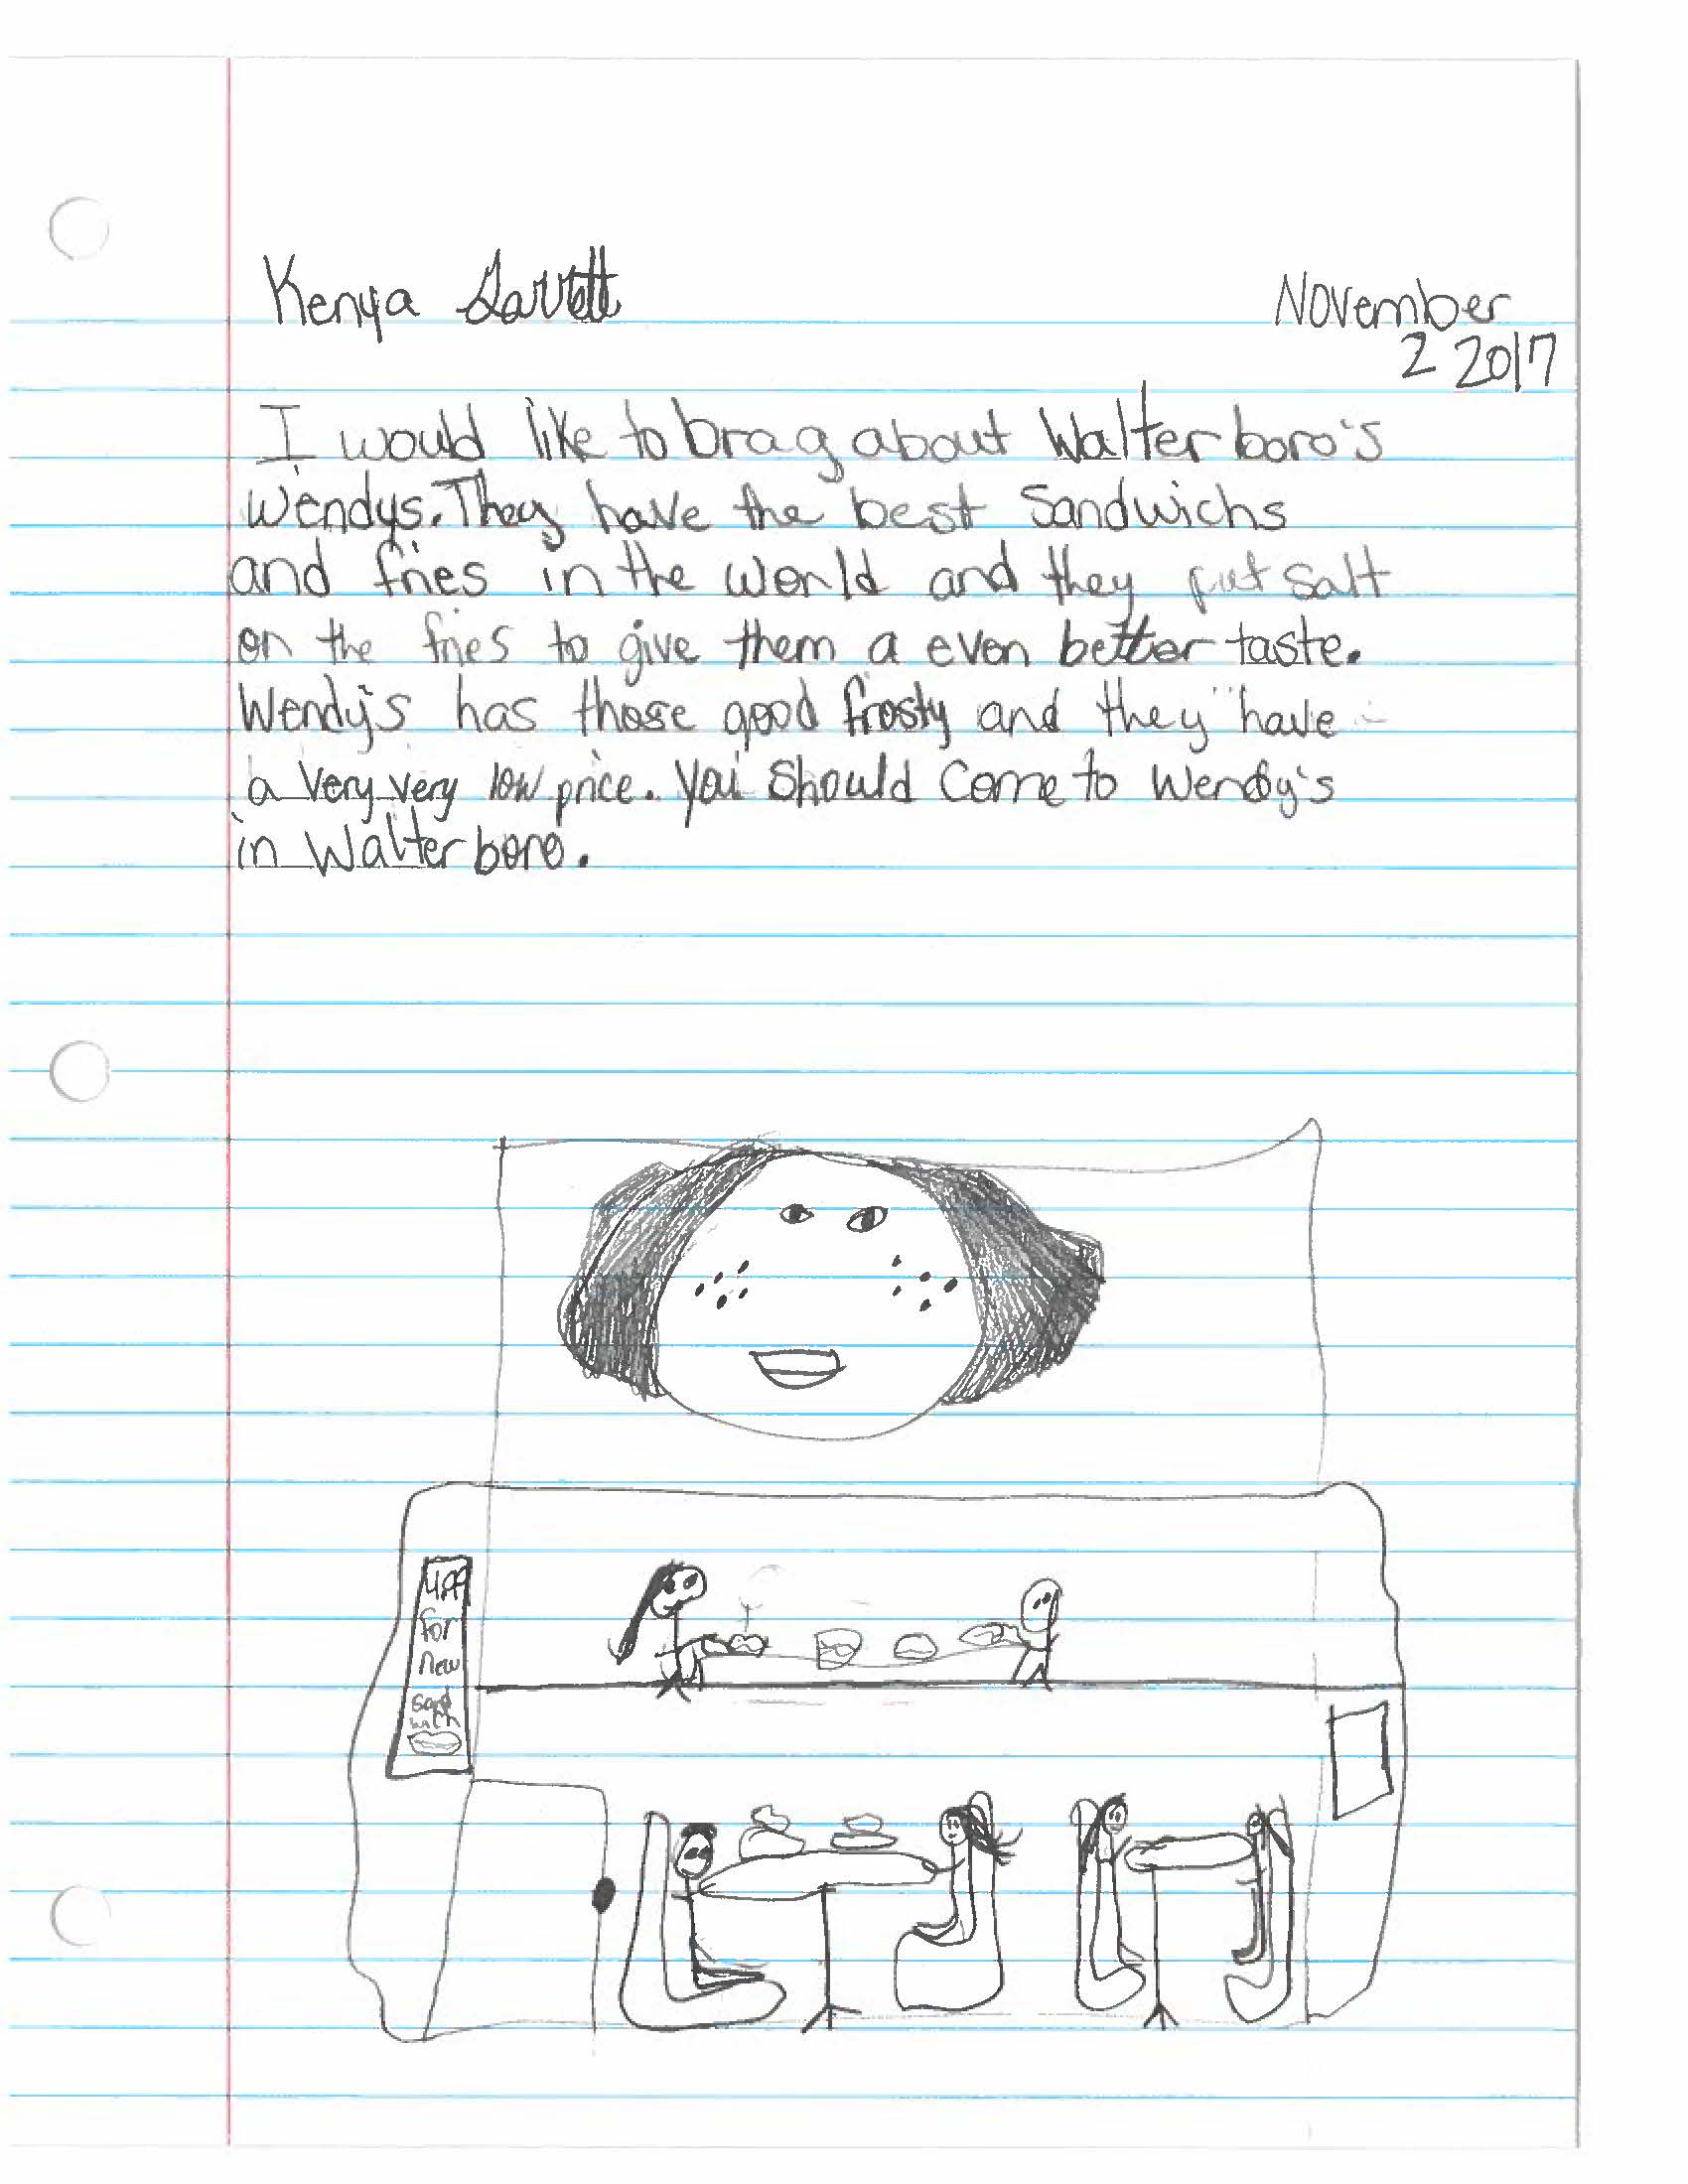 Kenya Garrett
November
2 2017
I would like to brag about Walterboro's
Wendys. They have the best Sandwichs
and fries in the world and they put salt
on the fries to give them a even better taste.
Wendy's has those good frosty and they have
a very very low price. You should come to Wendy's
in Walterboro.
4.99
for
New
sand
wich